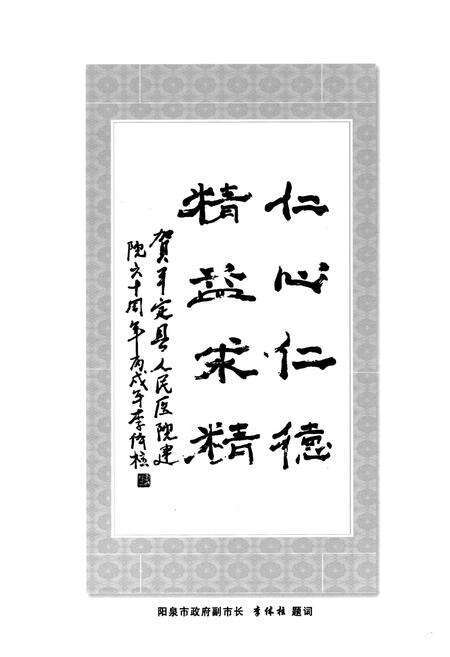 仁心仁德
精益求精
贺平定县人民医院建
院六十周年丙戌年李体柱
阳泉市政府副市长 李体柱 题词